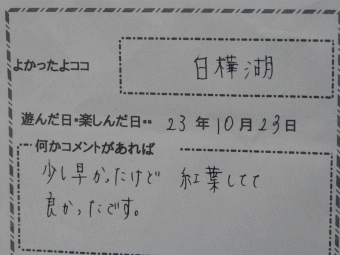 よかったよココ 白樺湖
遊んだ日・楽しんだ日・・ 23年10月23日
何かコメントがあれば
少し早かったけど 紅葉してて
良かったです。